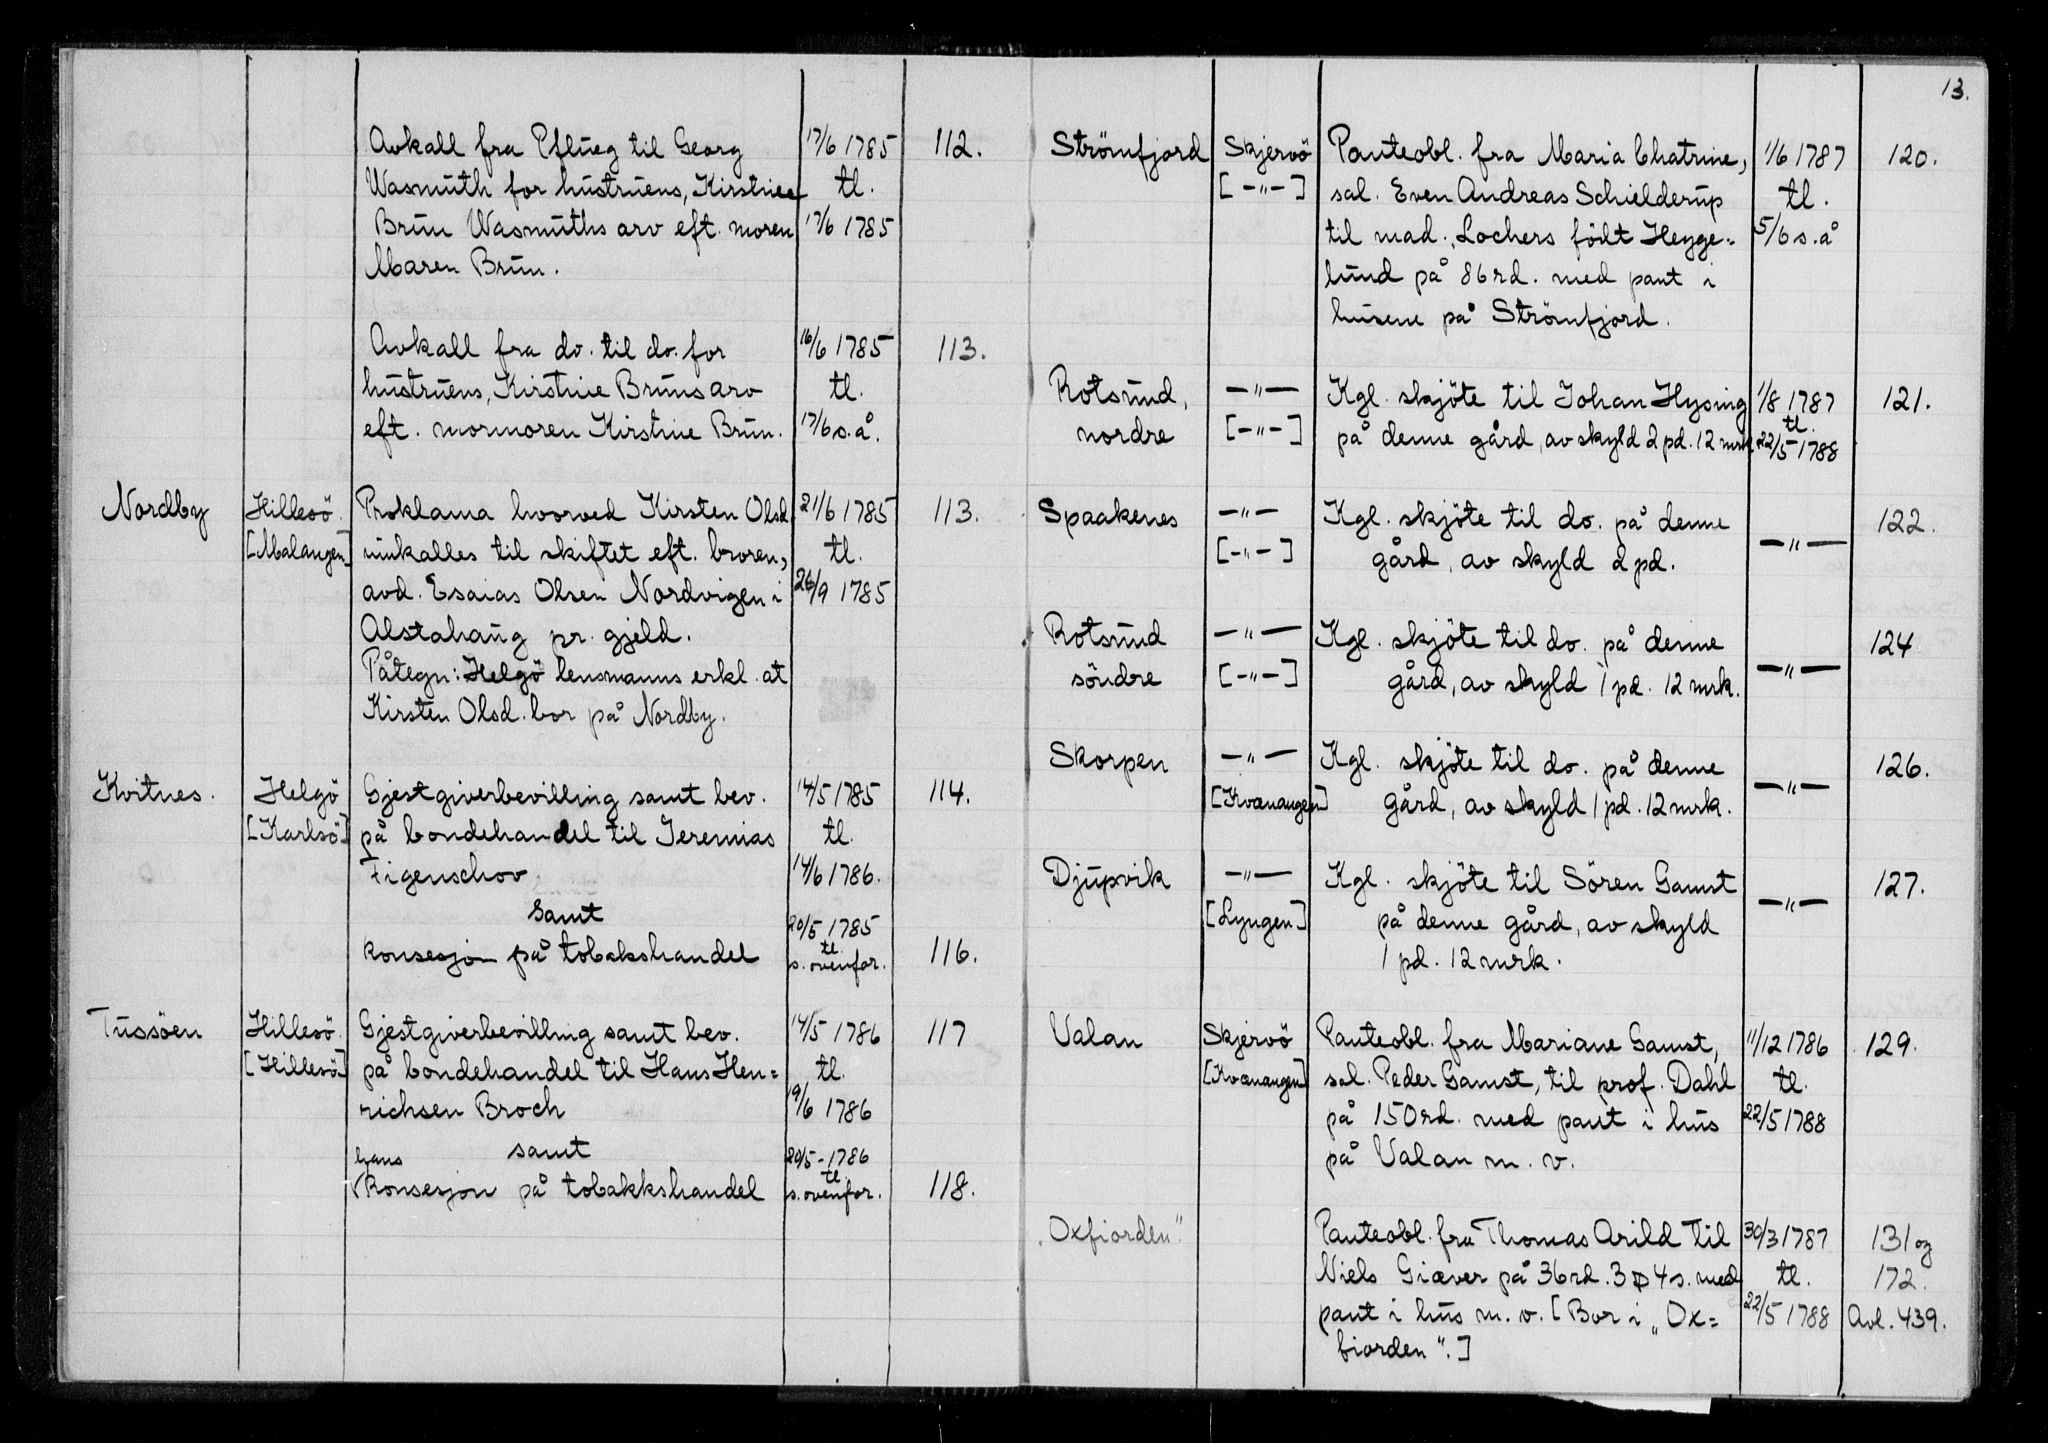 Avkall fra Pflueg til Georg 17/6 1785 112.
Wasmuth for hustruens, Kirstine tl.
Brun Wasmuths arv eft. moren 17/6 1785
Maren Brun.
Avkall fra do. til do. for 16/6 1785 113.
hustruens, Kirstine Bruns arv tl.
eft. mormoren Kirstine Brun. 17/6 s.å.
Nordby Hillesö Proklama hvorved Kirsten Olsd. 21/6 1785 113.
[Malangen] innkalles til skiftet eft. broren, tl.
avd. Esaias Olsen Nordvigen i 26/9 1785
Alstahaug pr. gjeld.
Påtegn: Helgö lensmanns erkl. at
Kirsten Olsd. bor på Nordby.
Kvitnes. Helgö Gjestgiverbevilling samt bev. 14/5 1785 114.
[Karlsö] på bondehandel til Jeremias tl.
Figenschov 14/6 1786.
samt 20/5 1785
tl.
konsesjon på tobakshandel s. ovenfor. 116.
Tussöen Hillesö Gjestgiverbevilling samt bev. 14/5 1786 117
[Hillesö] på bondehandel til Hans Hen= tl.
richsen Broch 19/6 1786
hans samt 20/5-1786
tl
√konsesjon på tobakkshandel s. ovenfor. 118.
13.
Strömfjord Skjervö Panteobl. fra Maria Chatrine, 1/6 1787 120.
[-"-] sal. Even Andreas Schielderup tl.
til mad. Lochers födt Heyge= 5/6 s.å
lund på 86 rd. med pant i
husene på Strömfjord.
Rotsund, -"- Kgl. skjöte til Johan Hysing 1/8 1787 121.
tl.
nordre [-"-] på denne gård, av skyld 2 pd. 12 mrk. 22/5 1788
Spaakenes -"- Kgl. skjöte til do. på denne 122.
[-"-] gård, av skyld 2 pd. -"-
Rotsund -"- Kgl. skjöte til do. på denne 124
söndre [-"-] gård, av skyld 1 pd. 12 mrk. -"-
Skorpen -"- Kgl. skjöte til do. på denne 126.
[Kvænangen] gård, av skyld 1 pd. 12 mrk. -"-
Djupvik -"- Kgl. skjöte til Sören Gamst 127.
[Lyngen] på denne gård, av skyld -"-
1 pd. 12 mrk.
Valan Skjervö Panteobl. fra Mariane Gamst, 11/12 1786 129.
[Kvænangen] sal. Peder Gamst, til prof. Dahl tl.
på 150 rd. med pant i hus 22/5 1788
på Valan m. v.
„Oxfiorden" Panteobl. fra Thomas Arild til 30/3 1787 131 og
Niels Giæver på 36 rd. 3 4 s. med tl. 172.
pant i hus m. v. [Bor i „Ox= 22/5 1788 Avl. 439.
fiorden".]